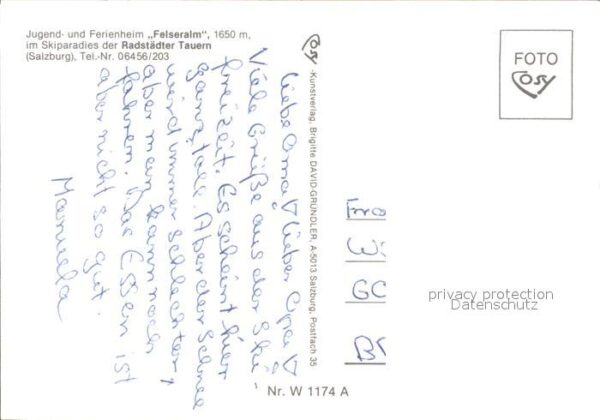 Jugend- und Ferienheim „Felseralm", 1650 m,
im Skiparadies der Radstädter Tauern
(Salzburg), Tel.-Nr. 06456/203
Liebe Oma, lieber Opa
Viele Grüße aus der Ski-
freizeit. Es scheint hier
ganz toll. Aber der Schnee
wird immer schlechter,
aber man kann noch
fahren. Das Essen ist
aber nicht so gut.
Manuela
Cosy -Kunstverlag, Brigitte DAVID-GRÜNDLER, A-5013 Salzburg, Postfach 35
FOTO
Cosy
privacy protection
Datenschutz
Nr. W 1174 A